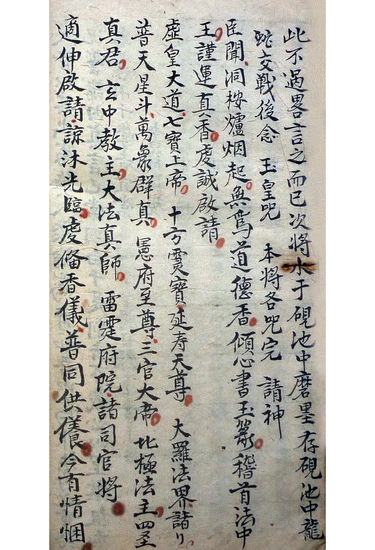 此不過畧言之而已次將水于硯池中磨墨存硯池中龍
蛇交戰後念 玉皇咒 本將各咒完 請神
臣聞洞桉爐烟起無為道德香傾心書玉篆稽首法中
王謹運真香虔誠啟請
虛皇大道七寶上帝 十方靈寶延寿天尊 大羅法界諸
普天星斗萬象群真 憲府至尊三官大帝 北極法主四圣
真君 玄中教主大法真師 雷霆府院諸司官將
適伸啟請諒沐光臨虔備香儀普同供養今有情悃